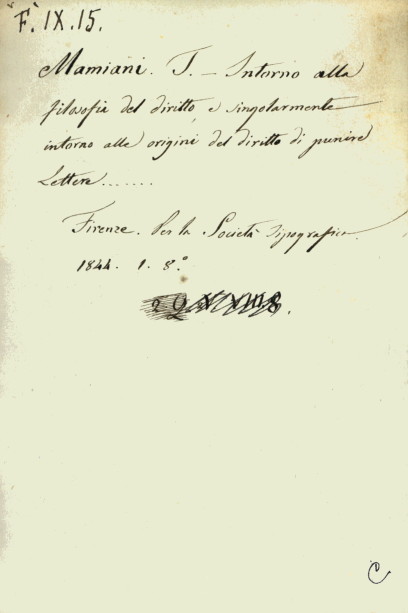 F. IX. 15.
Mamiani. T. – Intorno alla
filosofia del diritto, e singolarmente
intorno alle origini del diritto di punire
Lettere.......
Firenze. Per la Società Tipografica.
1844. 1. 8.°
C